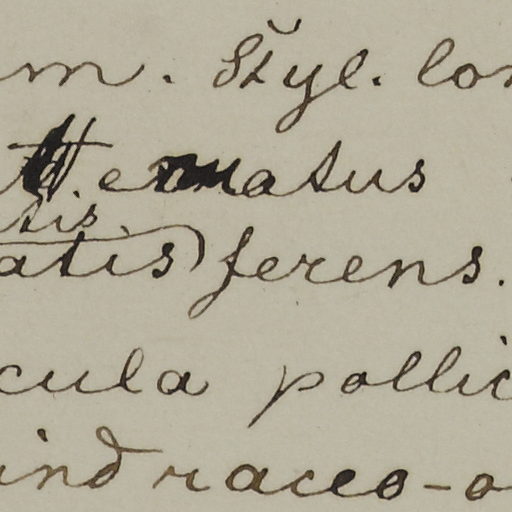 m. Styl. lon
attematus
tis
atis) ferens.
cula pollic
ind raceo-o